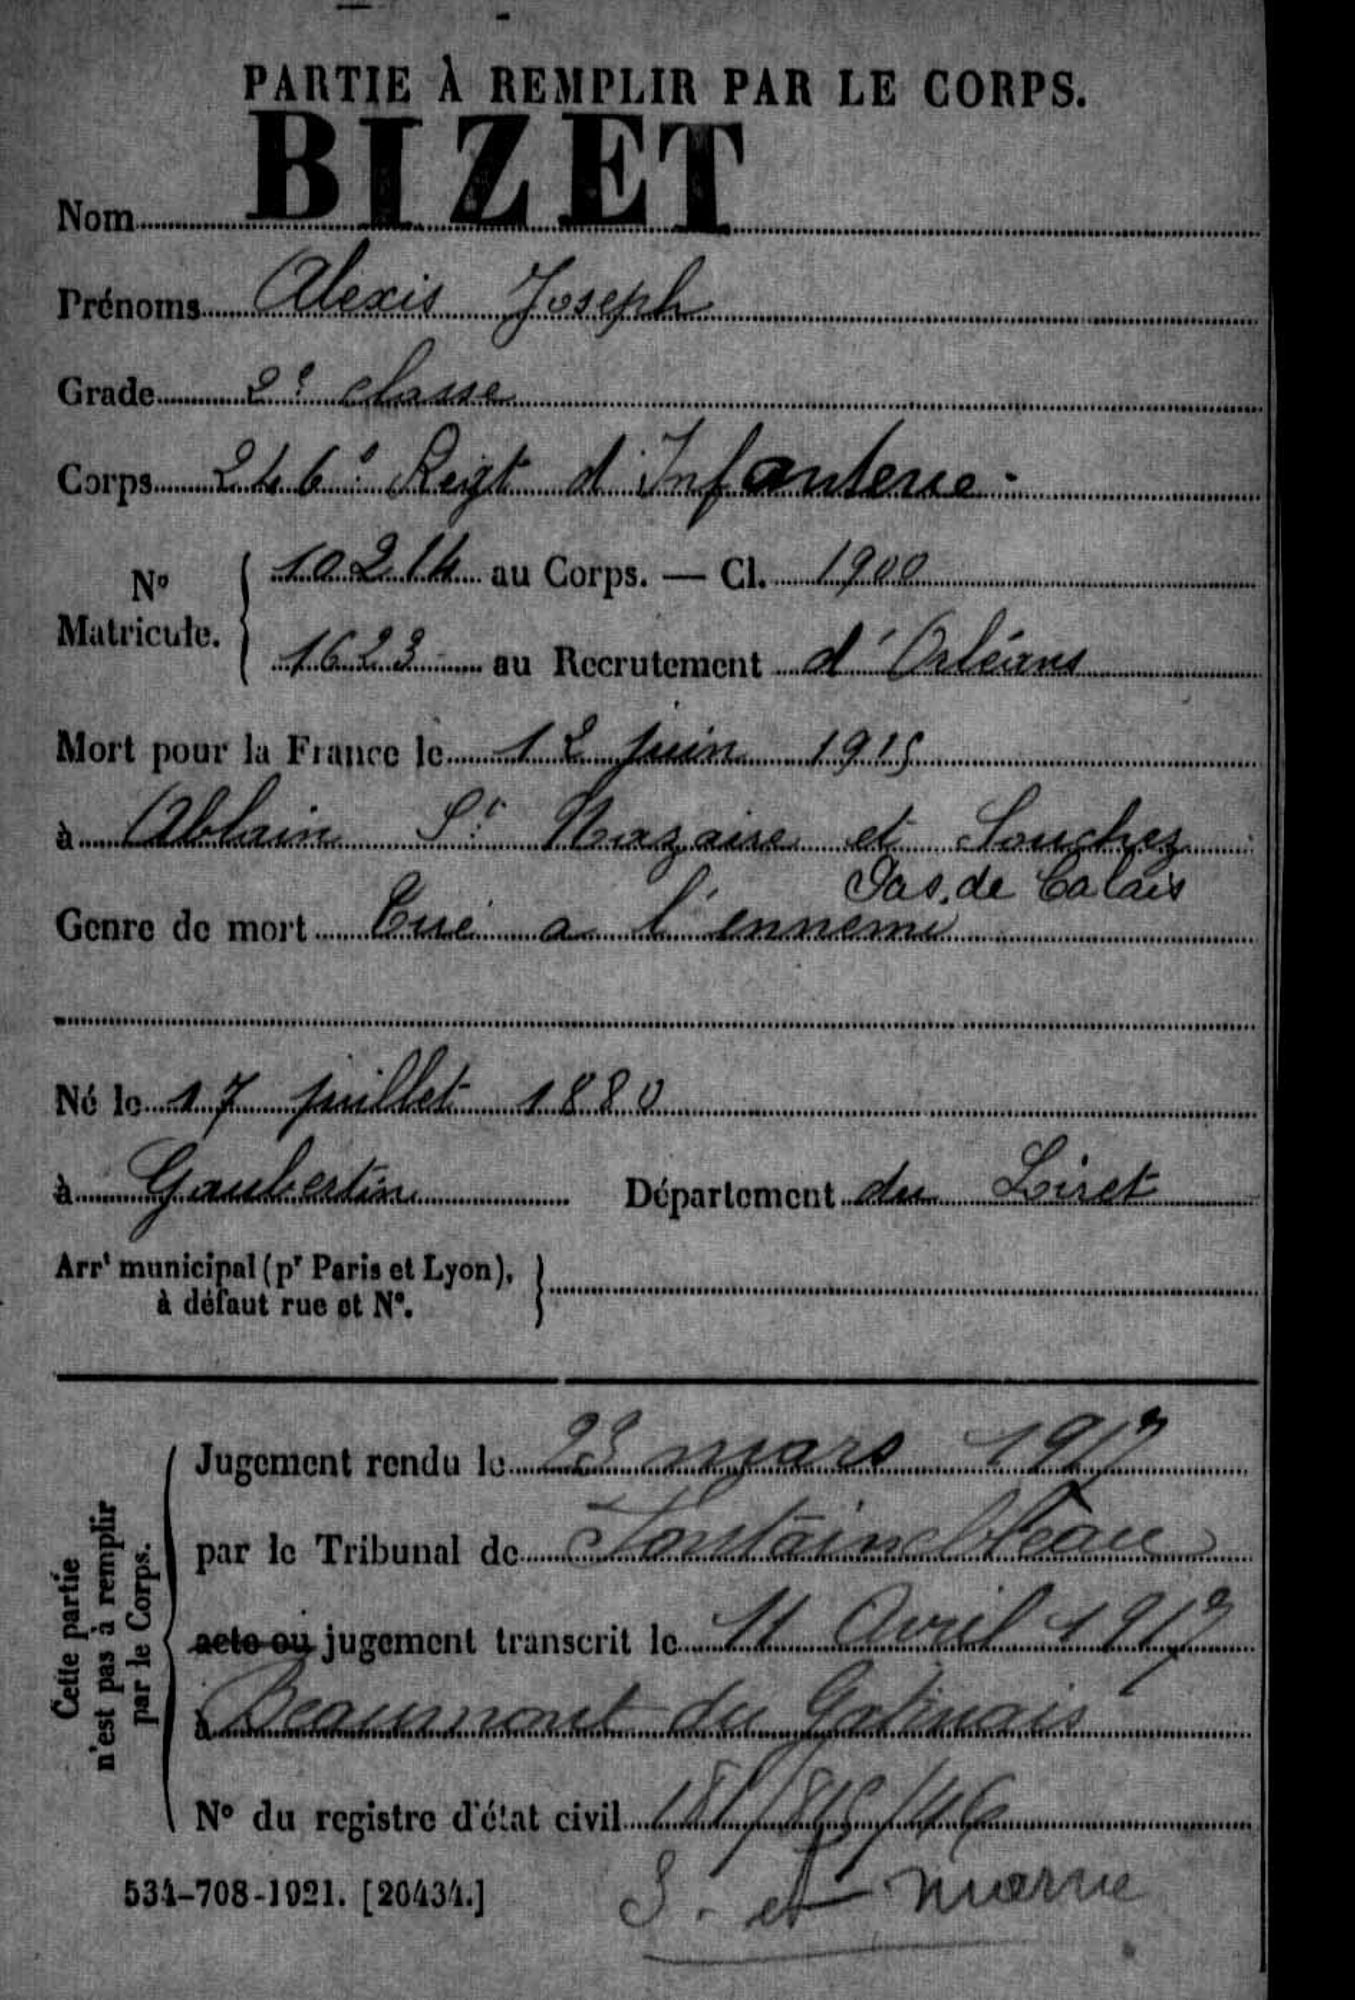 PARTIE À REMPLIR PAR LE CORPS.
Nom BIZET
Prénoms Alexis Joseph
Grade 2e classe
Corps 246e Regt d'Infanterie.
No Matricule. 10214 au Corps. — Cl. 1900
1623 au Recrutement d'Orléans
Mort pour la France le 12 juin 1915
à Ablain St Nazaire et Souchez
Pas. de Calais
Genre de mort Tué a l'ennemi
Né le 17 juillet 1880
à Gaubertin Département du Loiret
Arrt municipal (pr Paris et Lyon),
à défaut rue et No.
Cette partie
n'est pas à remplir
par le Corps.
Jugement rendu le 23 mars 1917
par le Tribunal de Fontainebleau
acte ou jugement transcrit le 11 Avril 1917
à Beaumont du Gatinais
No du registre d'état civil 181/815/46
534-708-1921. [20434.]
S. et marne